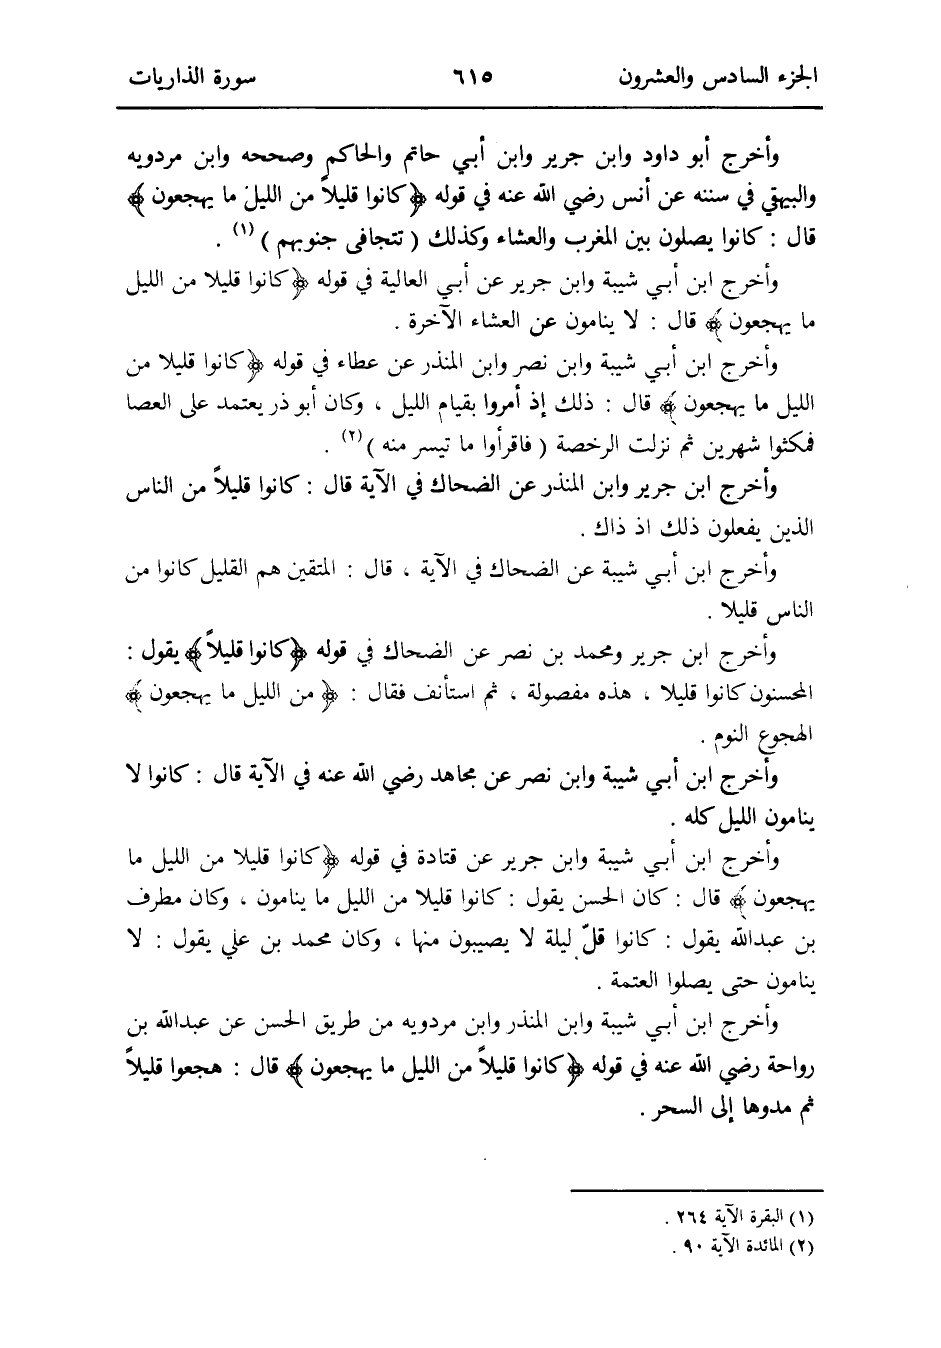 الجزء السادس والعشرون ٦١٥ سورة الذاريات
وأخرج أبو داود وابن جرير وابن أبي حاتم والحاكم وصححه وابن مردويه
والبيهقي في سننه عن أنس رضي الله عنه في قوله ﴿كانوا قليلاً من الليل ما يهجعون﴾
قال : كانوا يصلون بين المغرب والعشاء وكذلك ( تتجافى جنوبهم )(١) .
وأخرج ابن أبي شيبة وابن جرير عن أبي العالية في قوله ﴿كانوا قليلا من الليل
ما يهجعون﴾ قال : لا ينامون عن العشاء الآخرة .
وأخرج ابن أبي شيبة وابن نصر وابن المنذر عن عطاء في قوله ﴿كانوا قليلا من
الليل ما يهجعون﴾ قال : ذلك إذ أمروا بقيام الليل ، وكان أبو ذر يعتمد على العصا
فمكثوا شهرين ثم نزلت الرخصة ( فاقرأوا ما تيسر منه )(٢) .
وأخرج ابن جرير وابن المنذر عن الضحاك في الآية قال : كانوا قليلاً من الناس
الذين يفعلون ذلك اذ ذاك .
وأخرج ابن أبي شيبة عن الضحاك في الآية ، قال : المتقين هم القليل كانوا من
الناس قليلا .
وأخرج ابن جرير ومحمد بن نصر عن الضحاك في قوله ﴿كانوا قليلاً﴾ يقول :
المحسنون كانوا قليلا ، هذه مفصولة ، ثم استأنف فقال : ﴿من الليل ما يهجعون﴾
الهجوع النوم .
وأخرج ابن أبي شيبة وابن نصر عن مجاهد رضي الله عنه في الآية قال : كانوا لا
ينامون الليل كله .
وأخرج ابن أبي شيبة وابن جرير عن قتادة في قوله ﴿كانوا قليلا من الليل ما
يهجعون﴾ قال : كان الحسن يقول : كانوا قليلا من الليل ما ينامون ، وكان مطرف
بن عبدالله يقول : كانوا قلّ ليلة لا يصيبون منها ، وكان محمد بن علي يقول : لا
ينامون حتى يصلوا العتمة .
وأخرج ابن أبي شيبة وابن المنذر وابن مردويه من طريق الحسن عن عبدالله بن
رواحة رضي الله عنه في قوله ﴿كانوا قليلاً من الليل ما يهجعون﴾ قال : هجعوا قليلاً
ثم مدوها إلى السحر .
(١) البقرة الآية ٢٦٤ .
(٢) المائدة الآية ٩٠ .